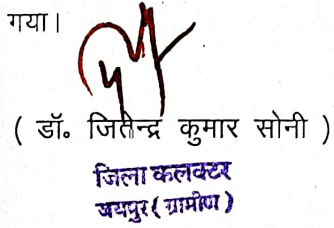 गया।
( डॉ॰ जितेन्द्र कुमार सोनी )
जिला कलक्टर
जयपुर ( ग्रामीण )